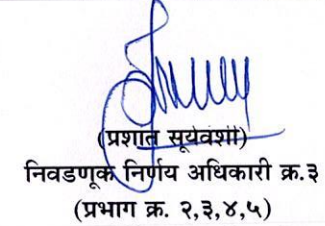 (प्रशांत सूर्यवंशी)
निवडणूक निर्णय अधिकारी क्र.३
(प्रभाग क्र. २,३,४,५)